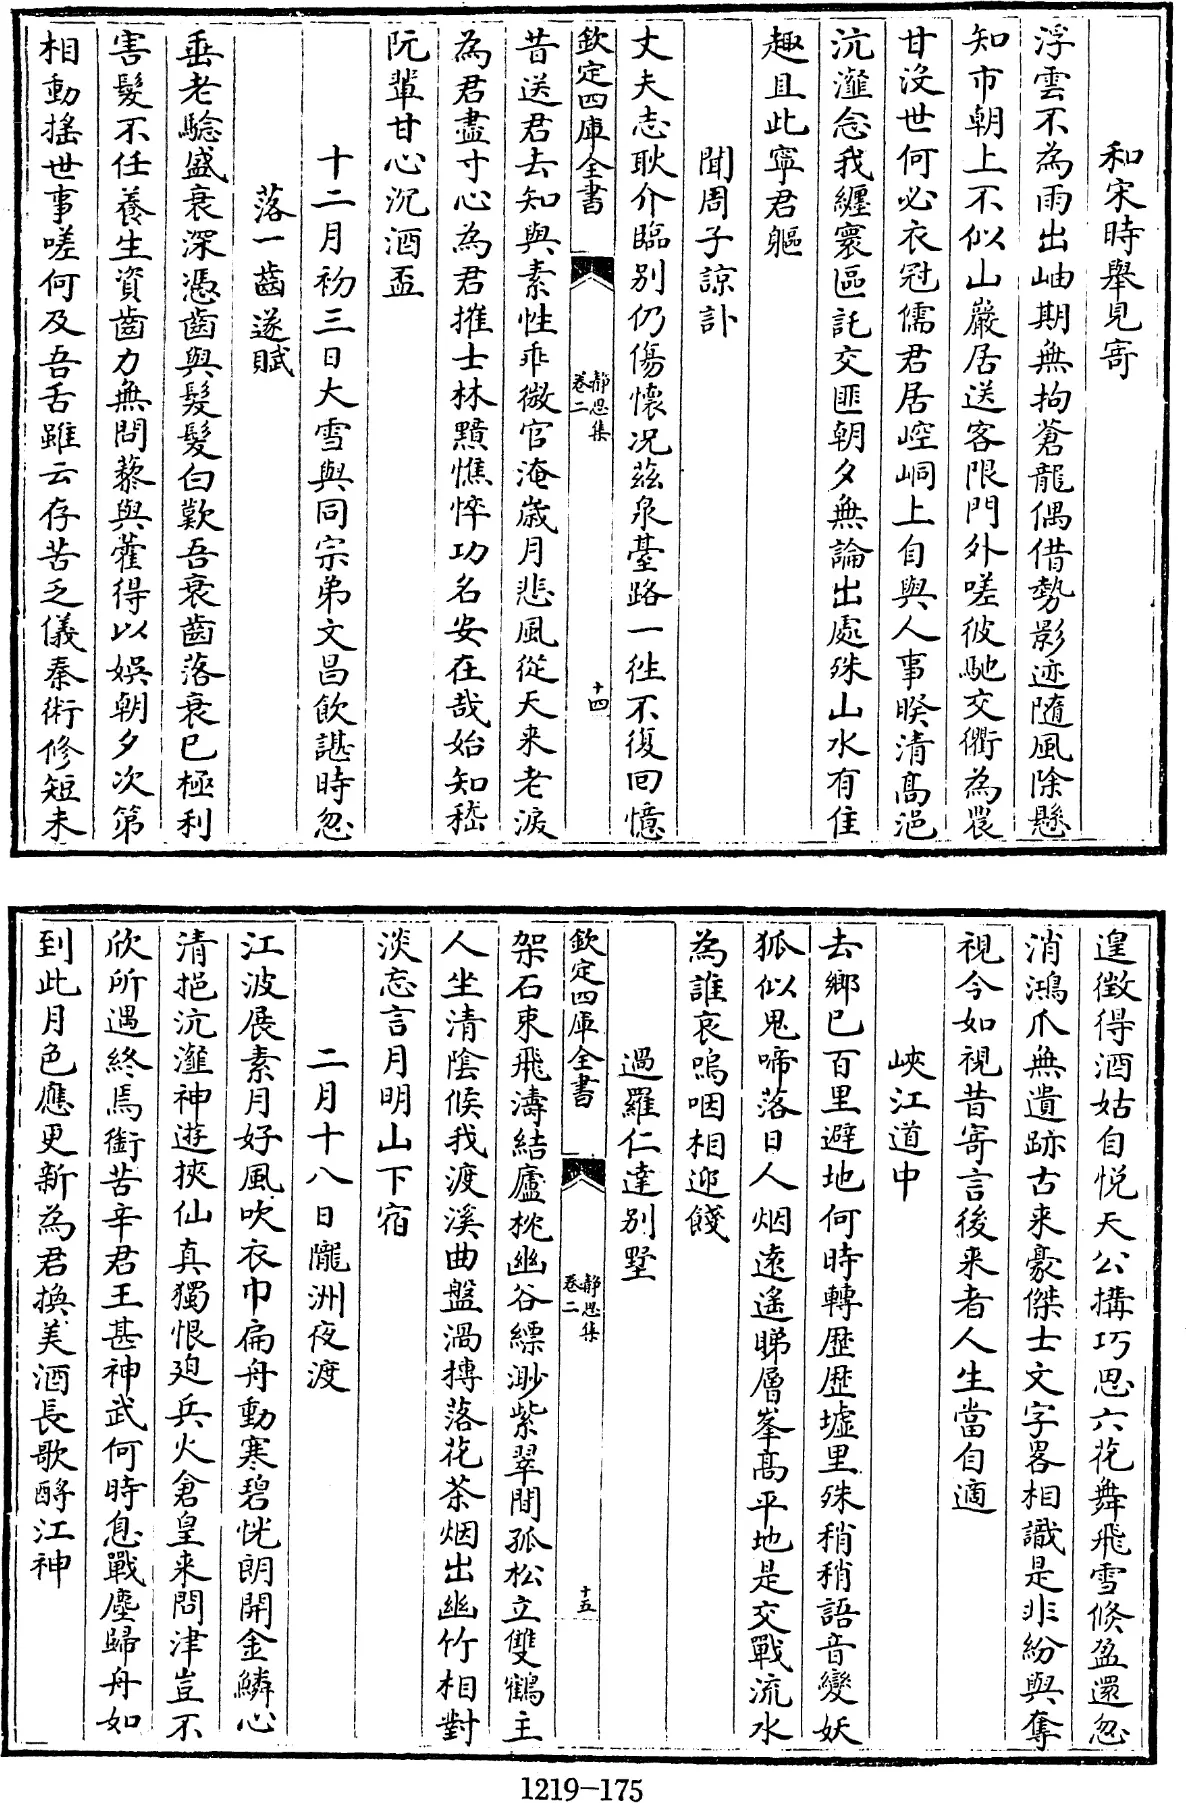 和宋時舉見寄
浮雲不為雨出岫期無拘蒼龍偶借勢影迹隨風除懸
知市朝上不似山巖居送客限門外嗟彼馳交衢為農
甘沒世何必衣冠儒君居崆峒上自與人事睽清髙浥
沆瀣念我纏寰區託交匪朝夕無論出處殊山水有佳
趣且此寧君軀
聞周子諒訃
丈夫志耿介臨别仍傷懷况兹泉臺路一往不復囘憶
欽定四庫全書
静思集
卷二
十四
昔送君去知與素性乖微官淹歲月悲風從天来老淚
為君盡寸心為君摧士林黯憔悴功名安在哉始知嵇
阮輩甘心沉酒盃
十二月初三日大雪與同宗弟文昌飲諶時忽
落一齒遂賦
垂老驗盛衰深憑齒與髮髮白歎吾衰齒落衰已極利
害髮不任養生資齒力無問藜與藿得以娛朝夕次第
相動搖世事嗟何及吾舌雖云存苦乏儀秦術修短未
遑徴得酒姑自悦天公搆巧思六花舞飛雪倐盈還忽
消鴻爪無遺跡古来豪傑士文字畧相識是非紛與奪
視今如視昔寄言後来者人生當自適
峽江道中
去鄉已百里避地何時轉歴歴墟里殊稍稍語音變妖
狐似鬼啼落日人烟遠遥睇層峯髙平地是交戰流水
為誰哀嗚咽相迎餞
過羅仁達别墅
欽定四庫全書
静思集
卷二
十五
架石束飛濤結廬枕幽谷縹渺紫翠間孤松立雙鶴主
人坐清陰候我渡溪曲盤渦摶落花茶烟出幽竹相對
淡忘言月明山下宿
二月十八日隴洲夜渡
江波展素月好風吹衣巾扁舟動寒碧恍朗開金鱗心
清挹沆瀣神遊挾仙真獨恨廹兵火倉皇来問津豈不
欣所遇終焉銜苦辛君王甚神武何時息戰塵歸舟如
到此月色應更新為君換美酒長歌酹江神
1219-175